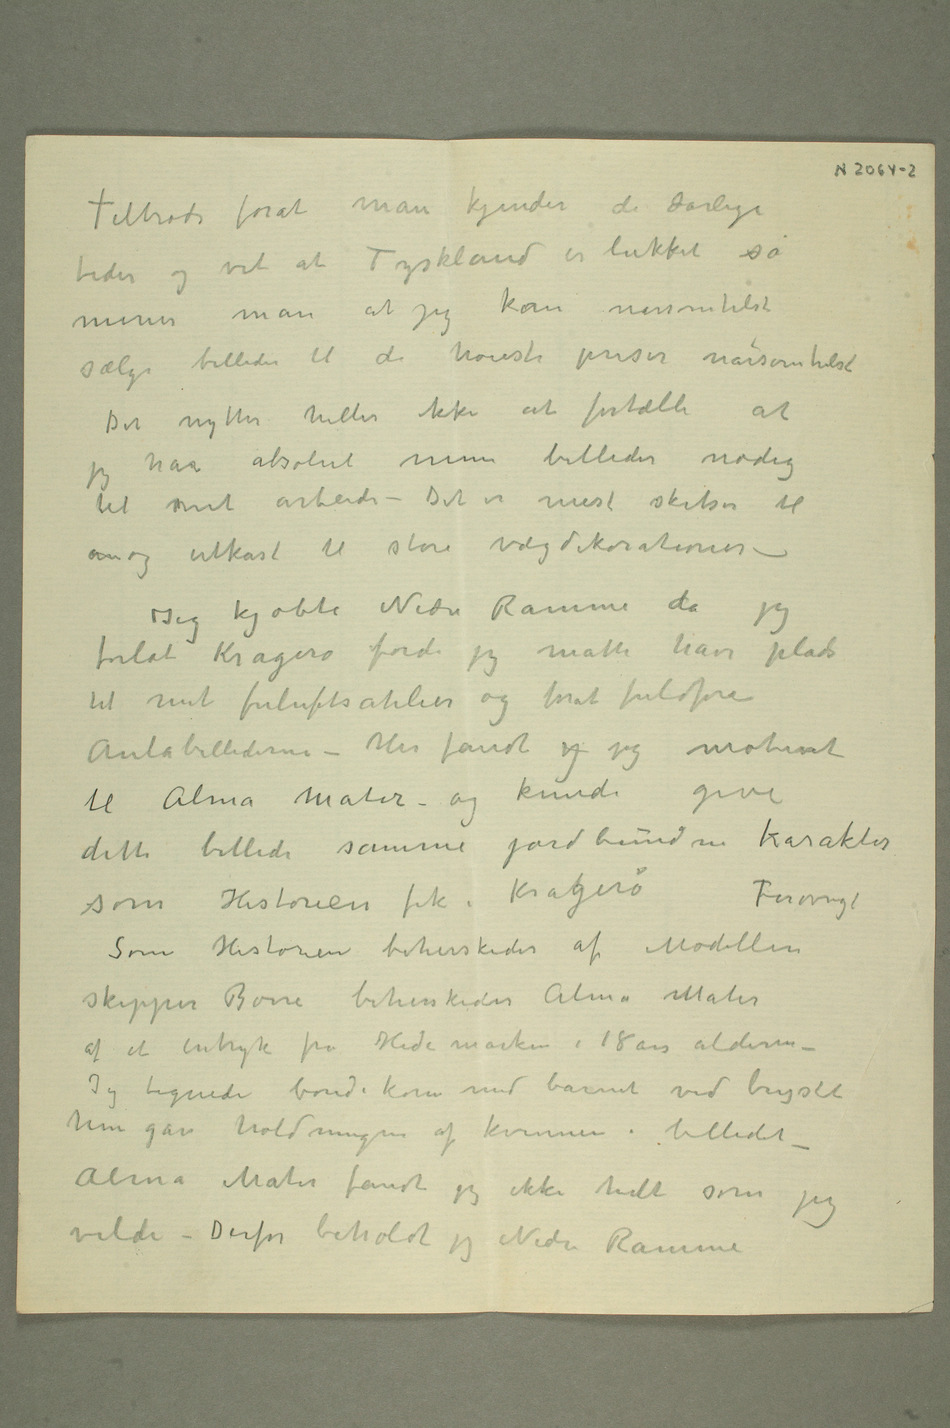 N 2064-2
Tiltrods forat man kjender de dårlige
tider og vet at Tyskland er lukket så
mener man at jeg kan nårsomhelst
sælge billeder til de høieste priser nårsomhelst
Det nytter heller ikke at fortælle at
jeg har absolut mine billeder nødig
til mit arbeide – Det er mest skitser til
og utkast til store vægdekorationer –
Jeg kjøbte Nedre Ramme da jeg
forlot Kragerø fordi jeg måtte have plads
til mit friluftsatelier og forat fuldføre
Aulabillederne – Her fandt jeg motivet
til Alma Mater – og kunde give
dette billede samme jordbundne karakter
som Historien fik i Kragerø Forøvrigt
Som Historien beherskedes af Modellen
skipper Børre beherskedes Alma Mater
af et intryk fra Hedemarken i 18 års alderen –
Jeg tegnede bondekone med barnet ved brystet
Hun gav holdningen af kvinnen i billedet –
Alma Mater fandt jeg ikke helt som jeg
vilde – Derfor beholdt jeg Nedre Ramme